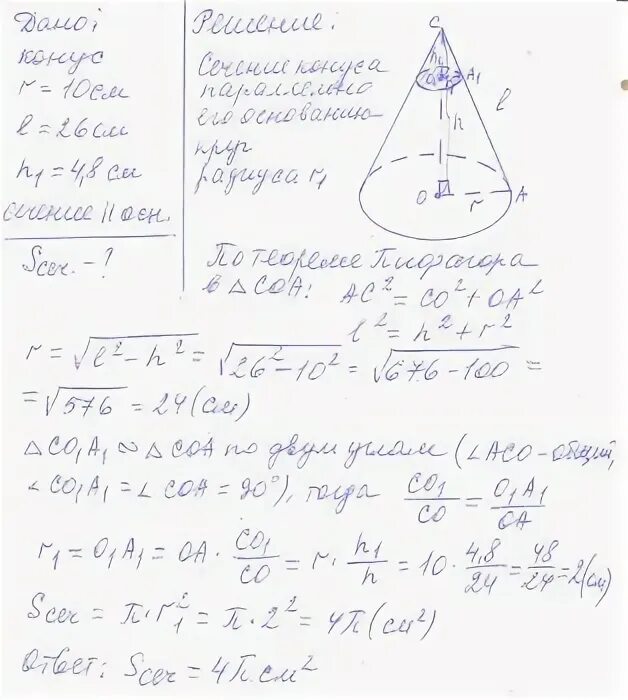 Дано:
конус
r = 10 см
l = 26 см
h₁ = 4,8 см
сечение || осн.
Sсеч. - ?
Решение:
Сечение конуса
параллельно
его основанию
круг
радиуса r₁
C
h₁
O₁
A₁
l
h
O
r
A
По теореме Пифагора
в △COA: AC² = CO² + OA²
l² = h² + r²
r = √(l² - h²) = √(26² - 10²) = √(676 - 100) =
= √576 = 24 (см)
△CO₁A₁ ∾ △COA по двум углам (∠ACO - общий,
∠CO₁A₁ = ∠COA = 90°), тогда CO₁/CO = O₁A₁/OA
r₁ = O₁A₁ = OA · CO₁/CO = r · h₁/h = 10 · 4,8/24 = 48/24 = 2 (см)
Sсеч = π · r₁² = π · 2² = 4π (см²)
Ответ: Sсеч = 4π см²